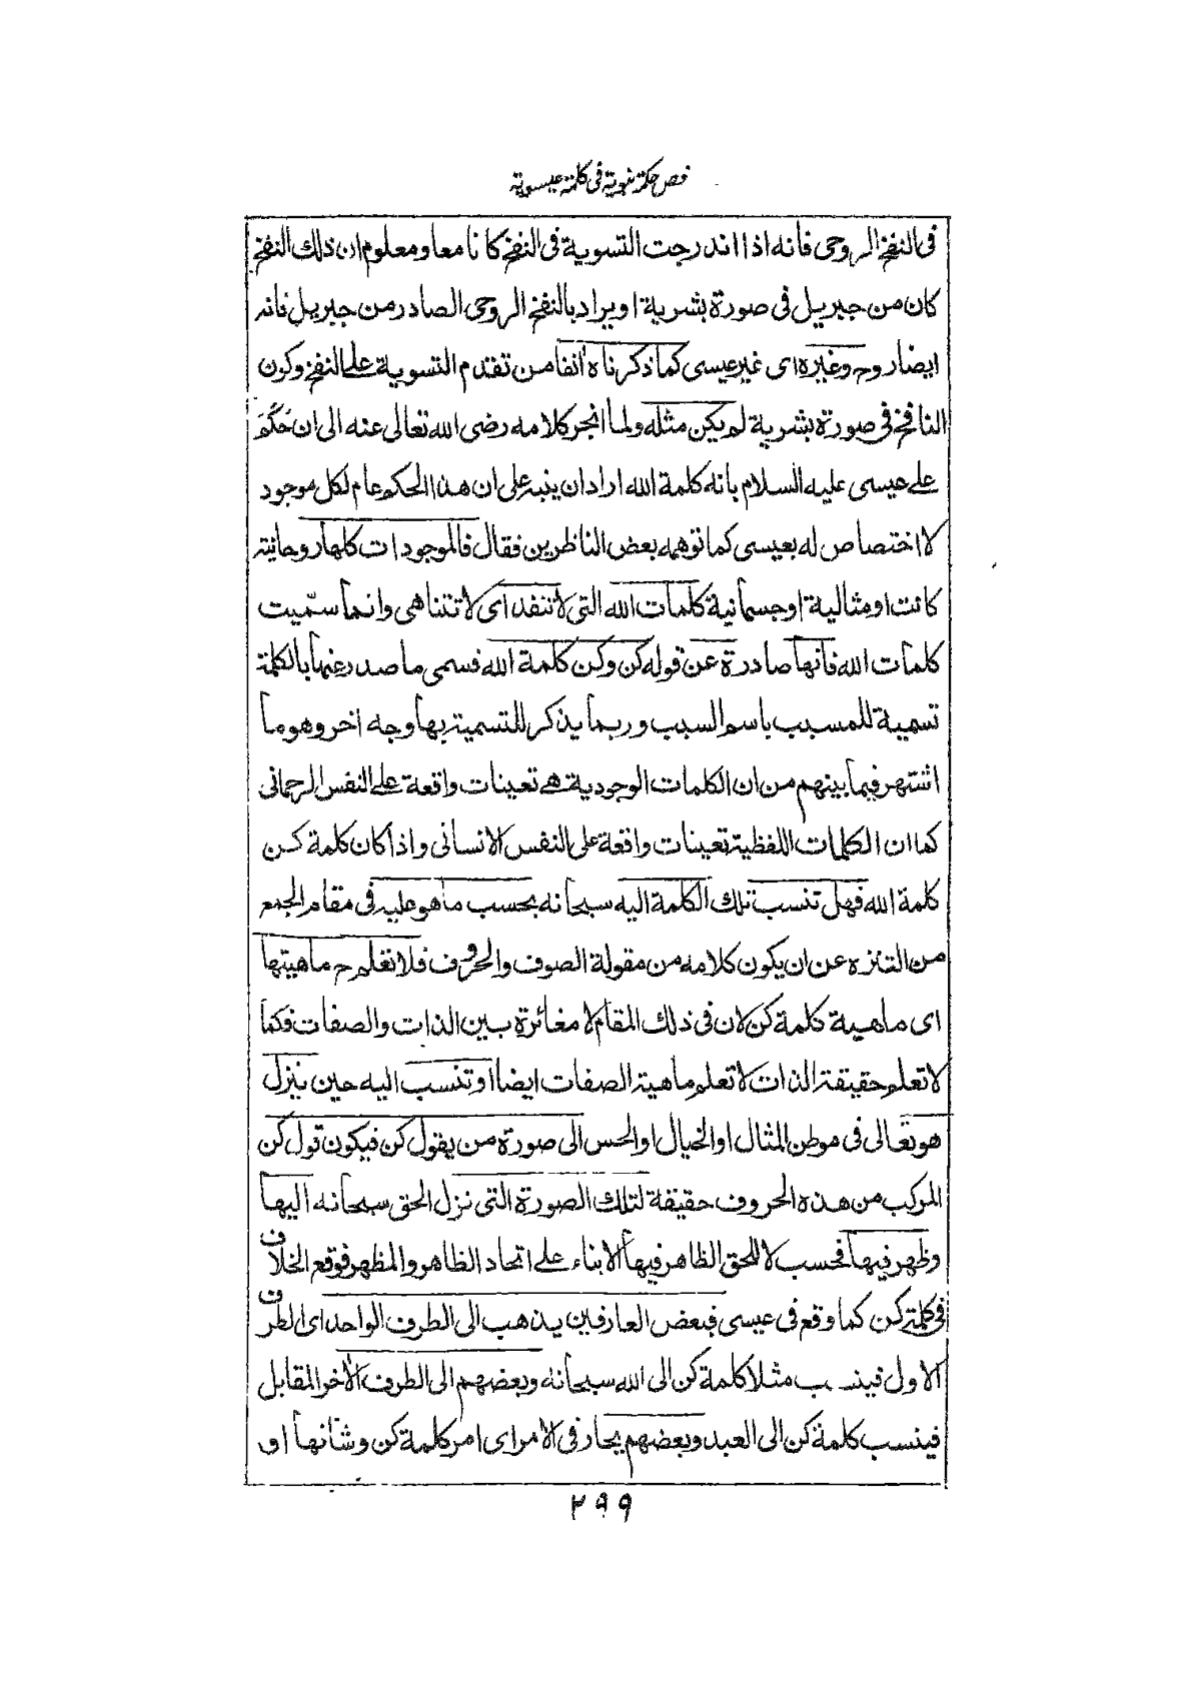 فص حكمة نبوية فى كلمة عيسوية
فى النفخ الروحى فانه اذا اندرجت التسوية فى النفخ كانا معا ومعلوم ان ذلك النفخ
كان من جبريل فى صورة بشرية او يراد بالنفخ الروحى الصادر من جبريل فانه
ايضا روح وغيره اى غير عيسى كما ذكرناه آنفا من تقدم التسوية على النفخ وكون
النافخ فى صورة بشرية لم يكن مثله ولما انجر كلامه رضى الله تعالى عنه الى ان حُكِمَ
على عيسى عليه السلام بانه كلمة الله اراد ان ينبه على ان هذا الحكم عام لكل موجود
لا اختصاص له بعيسى كما توهمه بعض الناظرين فقال فالموجودات كلها روحانية
كانت او مثالية او جسمانية كلمات الله التى لا تنفد اى لا تتناهى وانما سمّيت
كلمات الله فانها صادرة عن قوله كن وكن كلمة الله فسمى ما صدر عنها بالكلمة
تسمية للمسبب باسم السبب وربما يذكر للتسمية بها وجه اخر وهو ما
اشتهر فيما بينهم من ان الكلمات الوجودية هى تعينات واقعة على النفس الرحمانى
كما ان الكلمات اللفظية تعينات واقعة على النفس الانسانى واذا كان كلمة كن
كلمة الله فهل تنسب تلك الكلمة اليه سبحانه بحسب ما هو عليه فى مقام الجمع
من التنزه عن ان يكون كلامه من مقولة الصوف والحروف فلا تعلم ح ماهيتها
اى ماهية كلمة كن لان فى ذلك المقام لا مغائرة بين الذات والصفات فكما
لا تعلم حقيقة الذات لا تعلم ماهية الصفات ايضا او تنسب اليه حين ينزل
هو تعالى فى موطن المثال او الخيال او الحس الى صورة من يقول كن فيكون قول كن
المركب من هذه الحروف حقيقة لتلك الصورة التى نزل الحق سبحانه اليها
وظهر فيها فحسب لا للحق الظاهر فيها الابناء على اتحاد الظاهر والمظهر فوقع الخلاف
فى كلمة كن كما وقع فى عيسى فبعض العارفين يذهب الى الطرف الواحد اى الطرف
الاول فينسب مثلا كلمة كن الى الله سبحانه وبعضهم الى الطرف الآخر المقابل
فينسب كلمة كن الى العبد وبعضهم يحار فى الامر اى امر كلمة كن وشانها او
٢٩٩